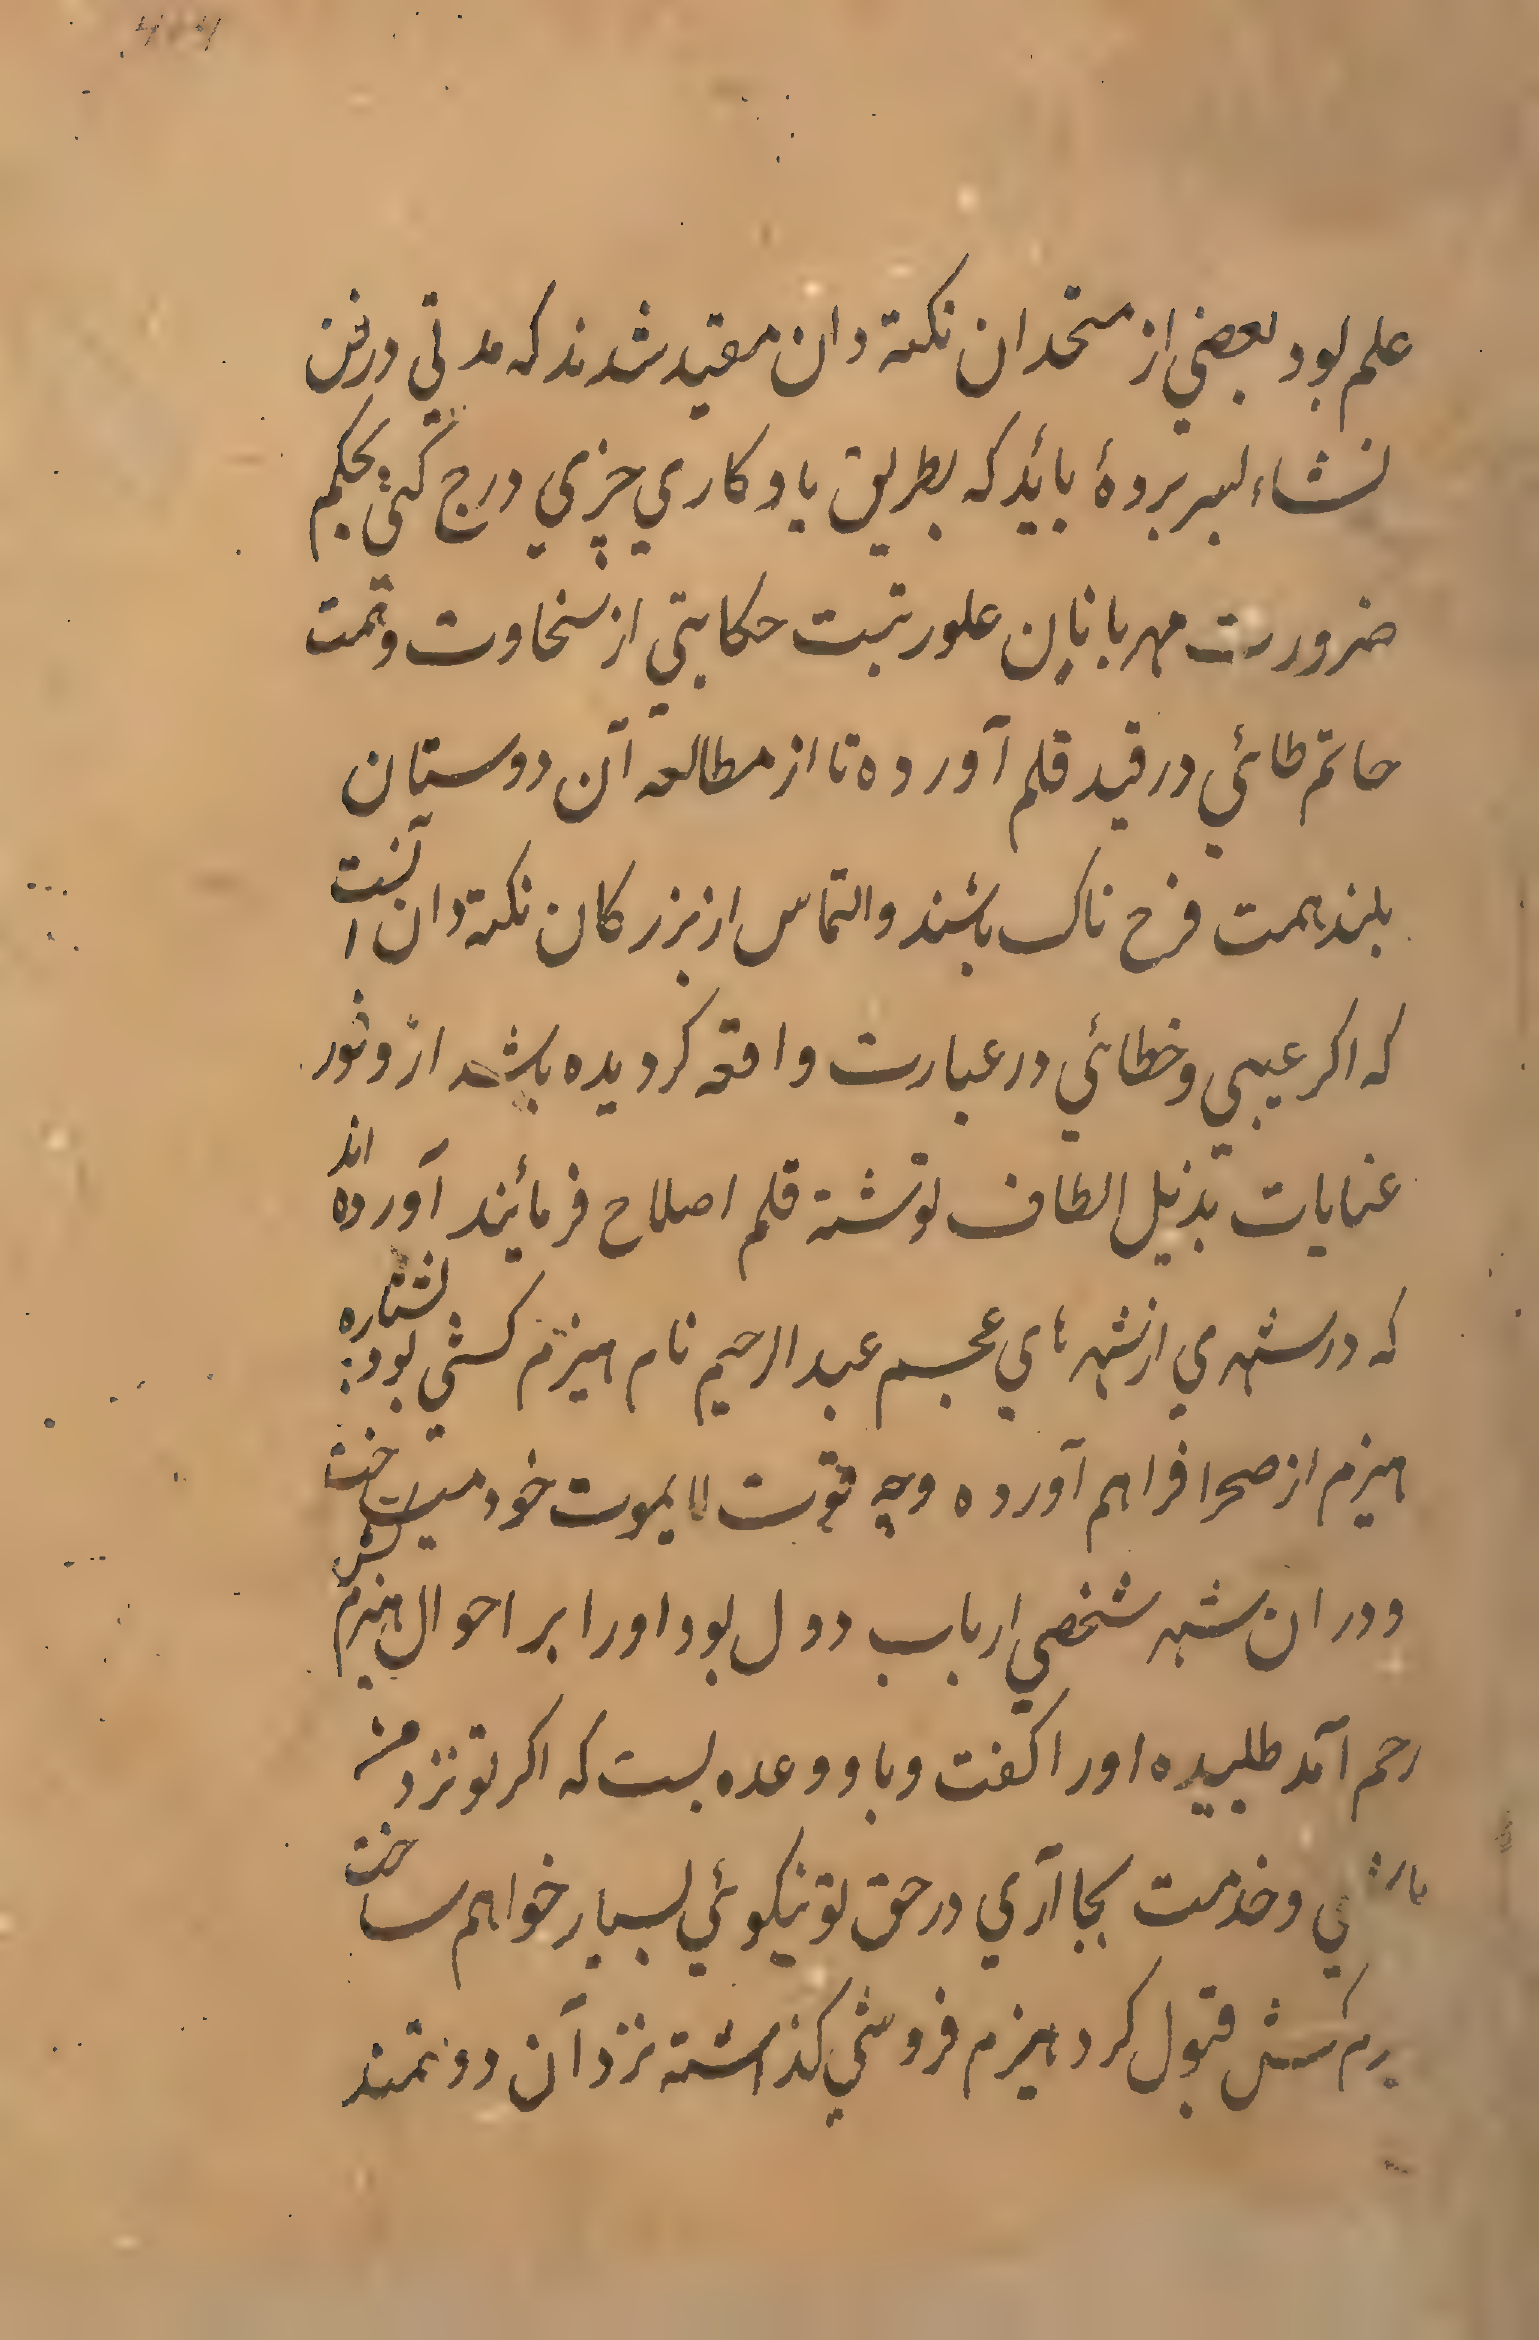 علم بود بعضي از متحدان نکته دان مقید شدند که مدتي در فن
نشاء بسر بردهٔ بائد که بطریق یاد کاري چزي درج کني بحکم
ضرورت مهربانان علو رتبت حکایتي از سخاوت و همت
حاتم طائي در قید قلم آورده تا از مطالعه آن دوستان
بلند همت فرح ناک باشند و التماس از بزرکان نکته دان آنست
که اکر عیبي و خطائي در عبارت واقعه کردیده باشد از وفور
عنایات بذیل الطاف پوشته قلم اصلاح فرمائند آورده اند
که در شهري از شهرهاي عجم عبد الرحیم نام هیزم کشي بود پشتاره
هیزم از صحرا فراهم آورده وجه قوت لایموت خود میساخت
و در ان شهر شخصي ارباب دول بود اورا بر احوال هیزم کش
رحم آمد طلبیده اورا کفت و با و وعده بست که اکر تو نزد من
باشي و خدمت بجا آري در حق تو نیکوئي بسیار خواهم ساخت
یزم کش قبول کرد هیزم فروشي کذاشته نزد آن دولتمند